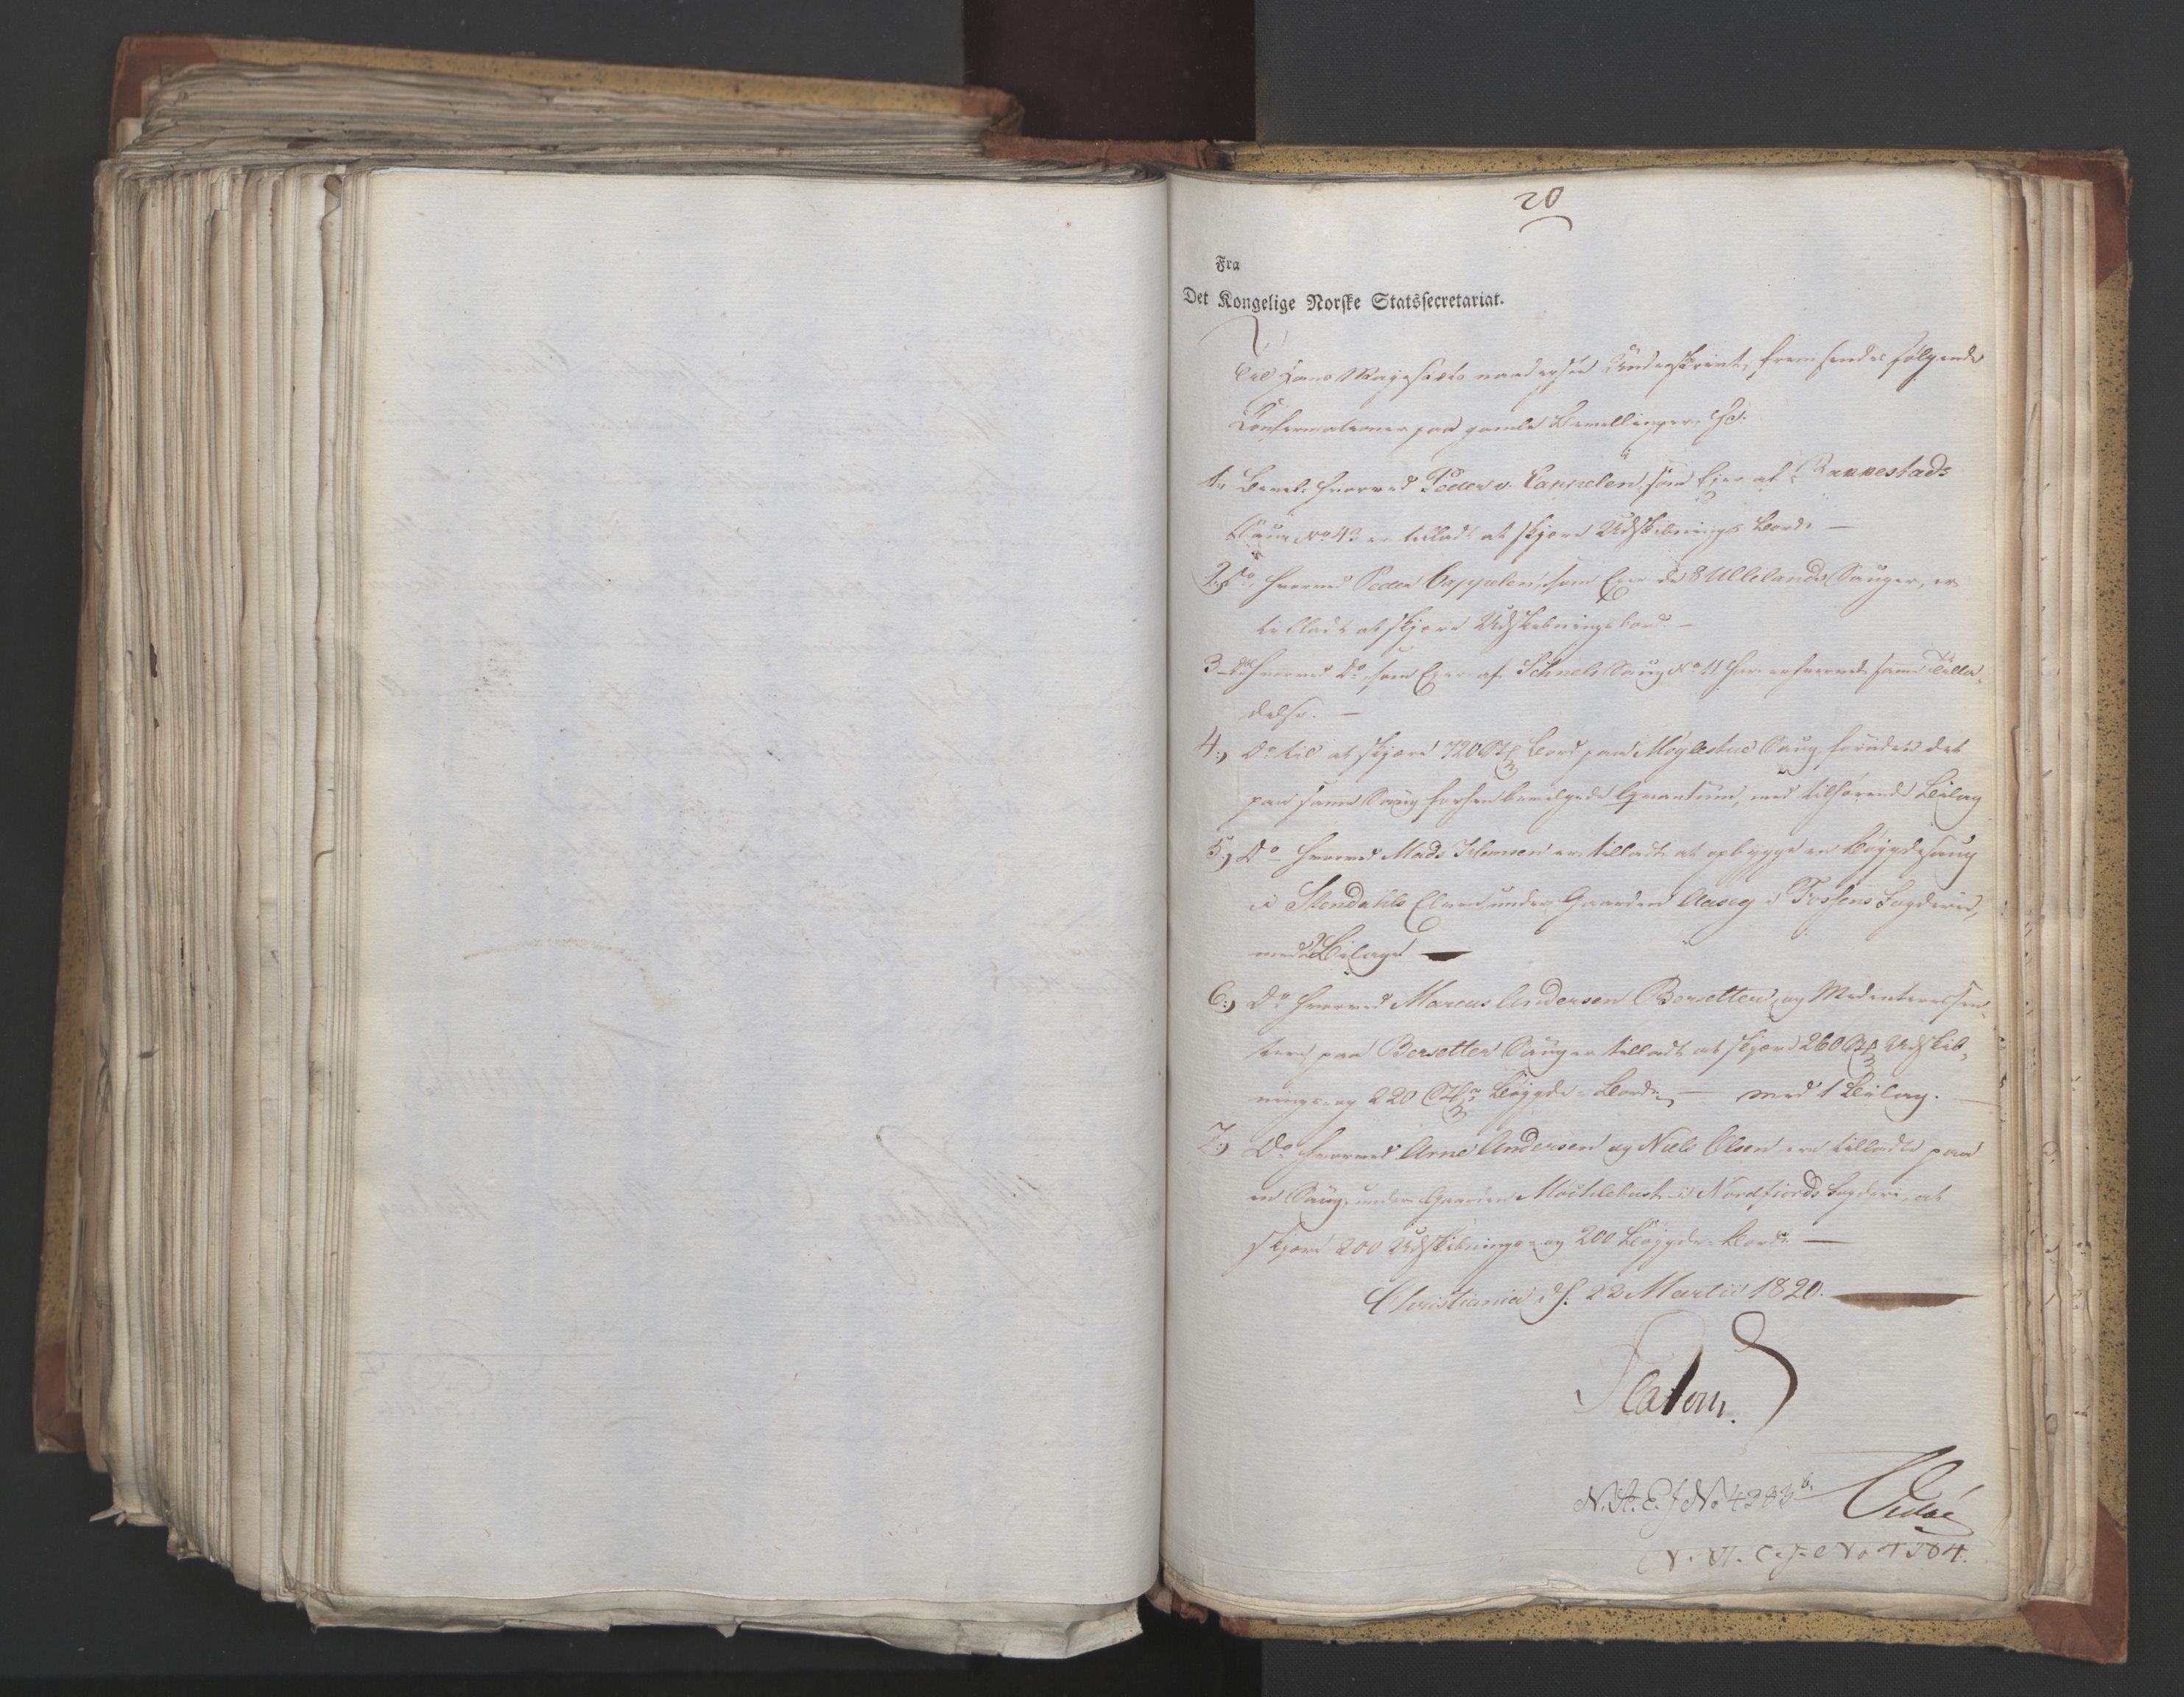 20
Fra
Det Kongelige Norske Statssecretariat.
Til Hans Majestæts naadigste Underskrivt, fremsendes følgende
Confirmationer paa gamle Bevillinger,
1. Bevil: hvorved Peder v. Cappelen, som Ejer af Rannestads
Saug No 43 er tilladt at skjære Udskibnings Bord. —
2. Do, hvorved Peder Cappelen, som Ejer af 8 Ullelands Sauger, er
tilladt at skjære Udskibningsbord. —
3 - Do hvorved Do, som Ejer af Schnels Saug No 11 har erhvervet samme Tilla-
delse. —
4., Do til at skjære 720 Bord paa Møglestue Saug, foruden det
paa samme Saug forhen bevilgede Qvantum, med tilhørende Bilag
5., Do hvorved Mads Jensen er tilladt at opbygge en Bøygdesaug
i Stendahls Elven under Gaarden Aaseg i Fossens Fogderie,
med Bilage —
6., Do hvorved Marcus Andersen Bersetten og Medinteressen-
tere paa Bersetten Saug er tilladt at skjære 260 Udskib-
nings- og 220 Bøygde-Bord, — med 1 Bilag. —
7., Do hvorved Arne Andersen og Niels Olsen ere tilladte paa
en Saug, under Gaarden Mochlebust i Nordfiords Fogderi, at
skjære 200 Udskibnings- og 200 Bøygde-Bord. —
Christiania d. 22 Martii 1820. —
Platou.
N. St. E. J No 4383 b.
N. St. C. J. No 4584.